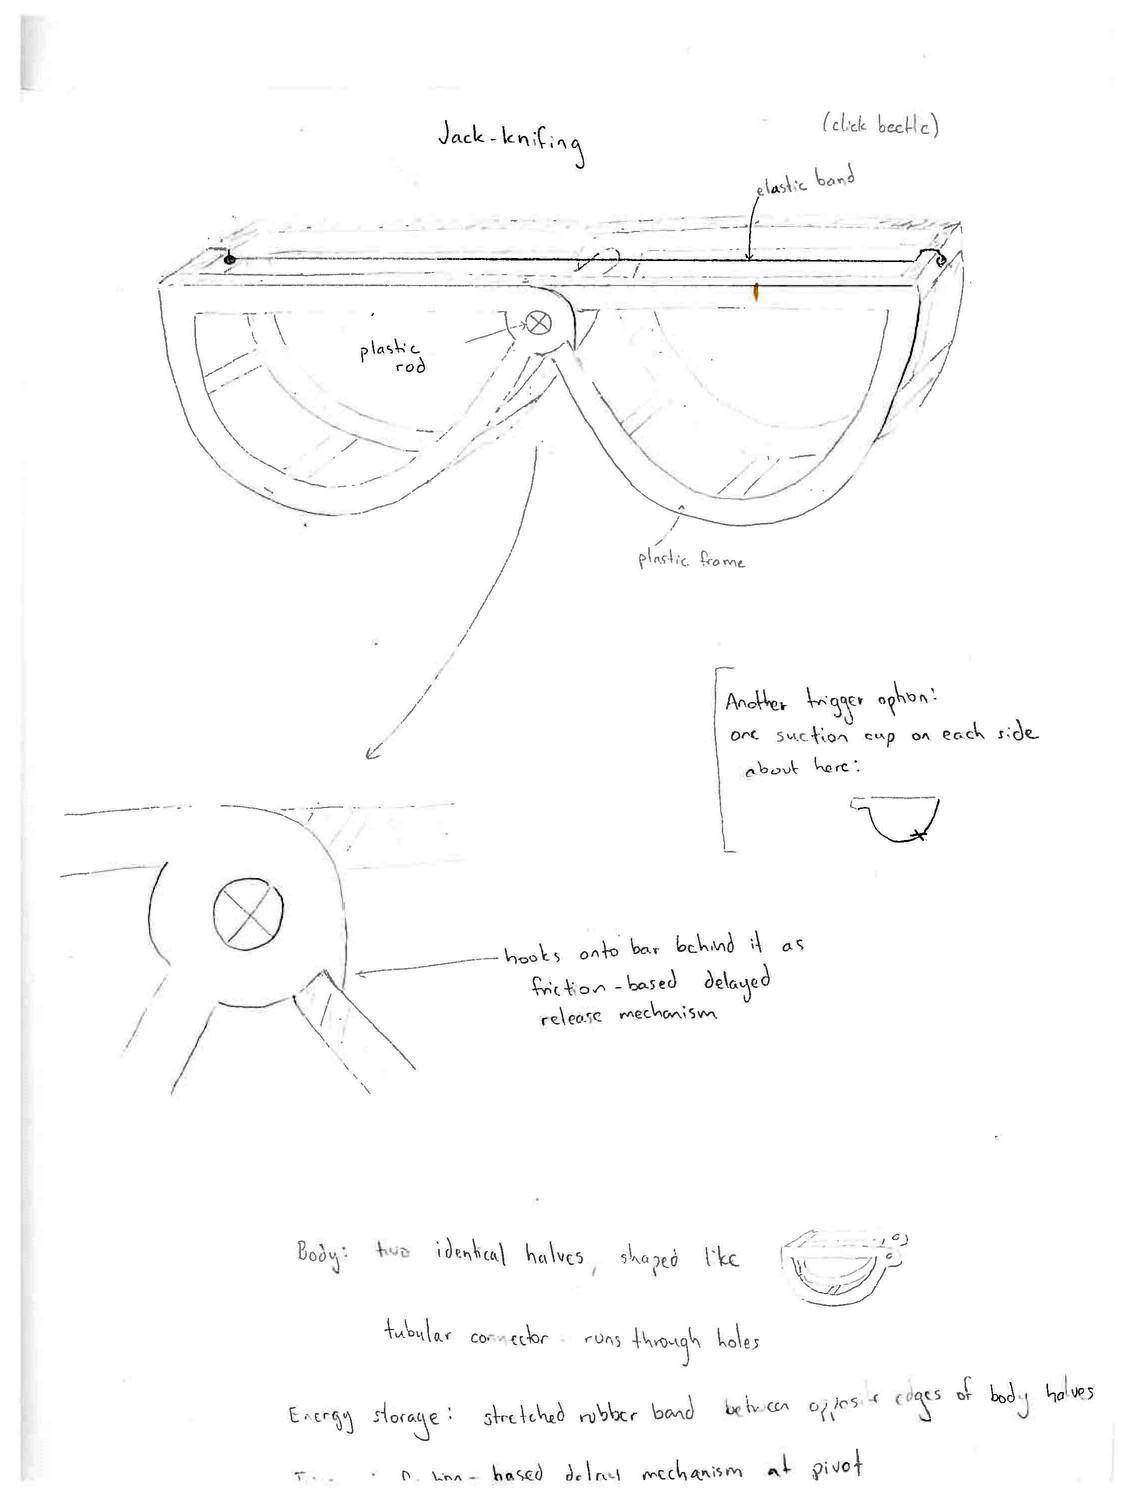 Jack-knifing
(click beetle)
elastic band
plastic
rod
plastic frame
Another trigger option:
one suction cup on each side
about here:
hooks onto bar behind it as
friction-based delayed
release mechanism
Body: two identical halves, shaped like
tubular connector runs through holes
Energy storage: stretched rubber band between opposite edges of body halves
based delay mechanism at pivot